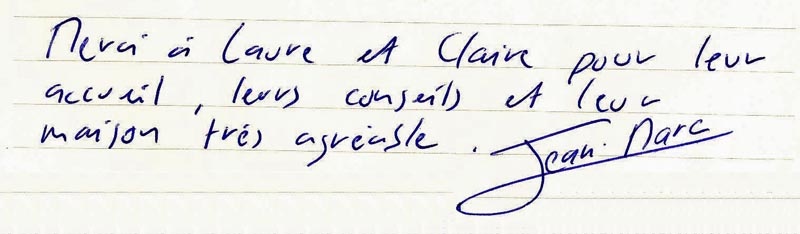 Merci à Laure et Claire pour leur
accueil, leurs conseils et leur
maison très agréable.
Jean-Marc